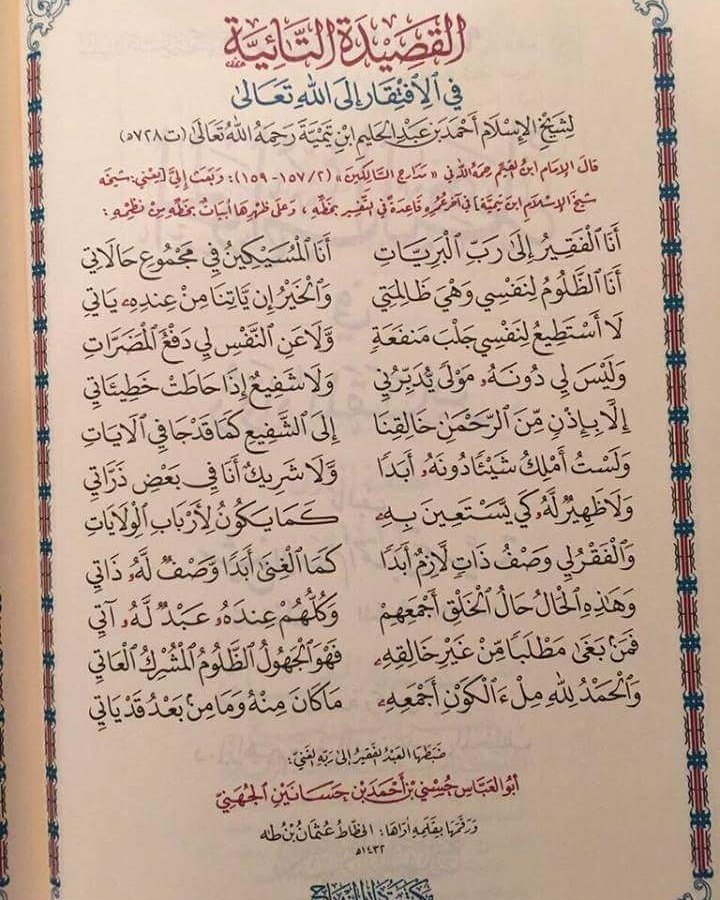 القَصِيدَة التَّائِيَّة
فِي ٱلِٱفْتِقَارِ إِلَى اللهِ تَعَالَى
لِشَيْخِ الإِسْلَامِ أَحْمَدَ بْنِ عَبْدِ الحَلِيمِ ابْنِ تَيْمِيَّةَ رَحِمَهُ اللهُ تَعَالَى (ت ٧٢٨ه)
قال الإمام ابن القيم رحمه الله في «مدارج السالكين» (٢/١٥٧-١٥٩): وبعث إليَّ [يعني: شيخه
شيخ الإسلام ابن تيمية] في آخر عمره قاعدة في التفسير بخطه، وعلى ظهرها أبيات بخطه من نظمه:
أَنَا الْفَقِيرُ إِلَى رَبِّ الْبَرِيَّاتِ أَنَا الْمُسَيْكِينُ فِي مَجْمُوعِ حَالَاتِي
أَنَا الظَّلُومُ لِنَفْسِي وَهْيَ ظَالِمَتِي وَالْخَيْرُ إِن يَّاتِنَا مِنْ عِندِهِ يَاتِي
لَا أَسْتَطِيعُ لِنَفْسِي جَلْبَ مَنفَعَةٍ وَّلَا عَنِ النَّفْسِ لِي دَفْعُ الْمَضَرَّاتِ
وَلَيْسَ لِي دُونَهُ مَوْلًى يُّدَبِّرُنِي وَلَا شَفِيعٌ إِذَا حَاطَتْ خَطِيئَاتِي
إِلَّا بِإِذْنٍ مِّنَ الرَّحْمَنِ خَالِقِنَا إِلَى الشَّفِيعِ كَمَا قَدْ جَا فِي الَايَاتِ
وَلَسْتُ أَمْلِكُ شَيْئًا دُونَهُ أَبَدًا وَّلَا شَرِيكٌ أَنَا فِي بَعْضِ ذَرَّاتِي
وَلَا ظَهِيرٌ لَّهُ كَيْ يَسْتَعِينَ بِهِ كَمَا يَكُونُ لِأَرْبَابِ الْوِلَايَاتِ
وَالْفَقْرُ لِي وَصْفُ ذَاتٍ لَّازِمٌ أَبَدًا كَمَا الْغِنَى أَبَدًا وَّصْفٌ لَّهُ ذَاتِي
وَهَذِهِ الْحَالُ حَالُ الْخَلْقِ أَجْمَعِهِمْ وَكُلُّهُمْ عِندَهُ عَبْدٌ لَّهُ آتِي
فَمَن بَغَى مَطْلَبًا مِّنْ غَيْرِ خَالِقِهِ فَهْوَ الْجَهُولُ الظَّلُومُ الْمُشْرِكُ الْعَاتِي
وَالْحَمْدُ لِلَّهِ مِلْءَ الْكَوْنِ أَجْمَعِهِ مَا كَانَ مِنْهُ وَمَا مِن بَعْدُ قَدْ يَاتِي
ضَبَطَهَا العَبْدُ الفَقِيرُ إِلَى رَبِّهِ الغَنِيِّ:
أَبُو العَبَّاسِ حُسْنِي بْنِ أَحْمَدَ بْنِ حَسَانَيْنِ الجُهَنِيُّ
وَرَقَمَهَا بِقَلَمِهِ أَوَاهًا: الخَطَّاطُ عُثْمَانُ بْنُ طه
١٤٣٢ه